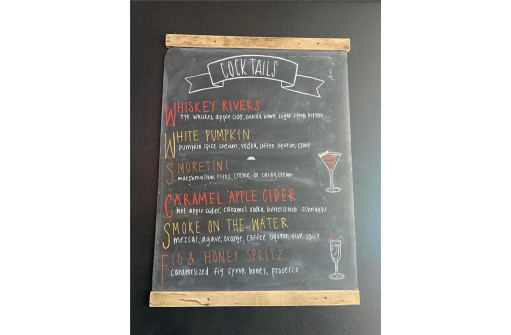 COCKTAILS
WHISKEY RIVERS
rye whiskey, apple cider, vanilla brown sugar syrup, bitters
WHITE PUMPKIN
pumpkin spice cream, vodka, coffee liqueur, clove
SMORETINI
marshmallow, titos, creme de cacao, cream
CARAMEL APPLE CIDER
hot apple cider, caramel vodka, butterscotch schnapps
SMOKE ON THE WATER
mezcal, agave, orange, coffee liqueur, five spice
FIG & HONEY SPRITZ
caramelized fig syrup, honey, prosecco